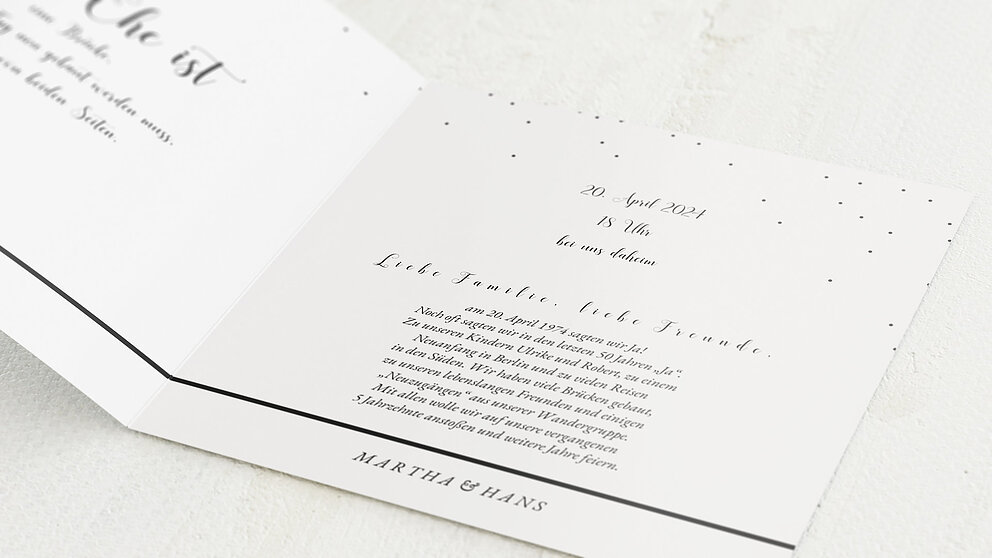 Ehe ist
eine Brücke,
Tag neu gebaut werden muss,
von beiden Seiten.
20. April 2024
18 Uhr
bei uns daheim
Liebe Familie, liebe Freunde,
am 20. April 1974 sagten wir Ja!
Noch oft sagten wir in den letzten 50 Jahren „Ja“.
Zu unseren Kindern Ulrike und Robert, zu einem
Neuanfang in Berlin und zu vielen Reisen
in den Süden. Wir haben viele Brücken gebaut,
zu unseren lebenslangen Freunden und einigen
„Neuzugängen“ aus unserer Wandergruppe.
Mit allen wolle wir auf unsere vergangenen
5 Jahrzehnte anstoßen und weitere Jahre feiern.
MARTHA & HANS